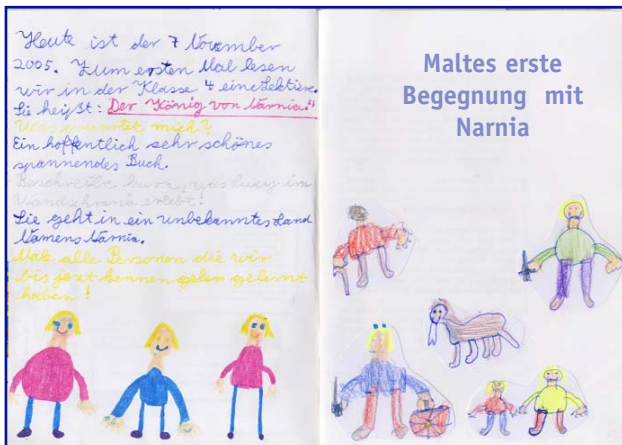 Heute ist der 7 November
2005. Zum ersten Mal lesen
wir in der Klasse 4 eine Lektüre.
Sie heißt: "Der König von Narnia."
Was erwartet mich?
Ein hoffentlich sehr schönes
spannendes Buch.
Beschreibe kurz, was Lucy im
Wandschrank erlebt!
Sie geht in ein unbekanntes Land
Namens Narnia.
Male alle Personen die wir
bis jezt kennen gelernt
haben!
Maltes erste
Begegnung mit
Narnia